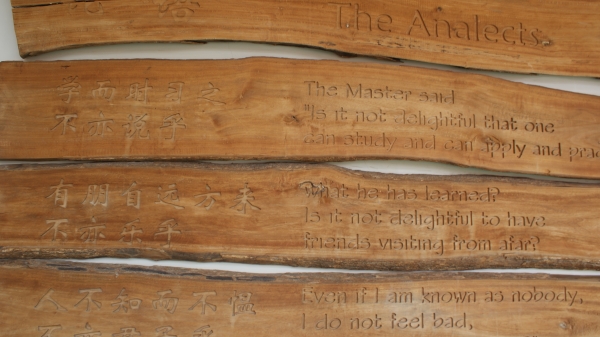 论语
The Analects
学而时习之
不亦说乎
The Master said
"Is it not delightful that one
can study and can apply and
有朋自远方来
不亦乐乎
What he has learned?
Is it not delightful to have
friends visiting from afar?
人不知而不愠
不亦君子乎
Even if I am known as nobody,
I do not feel bad,